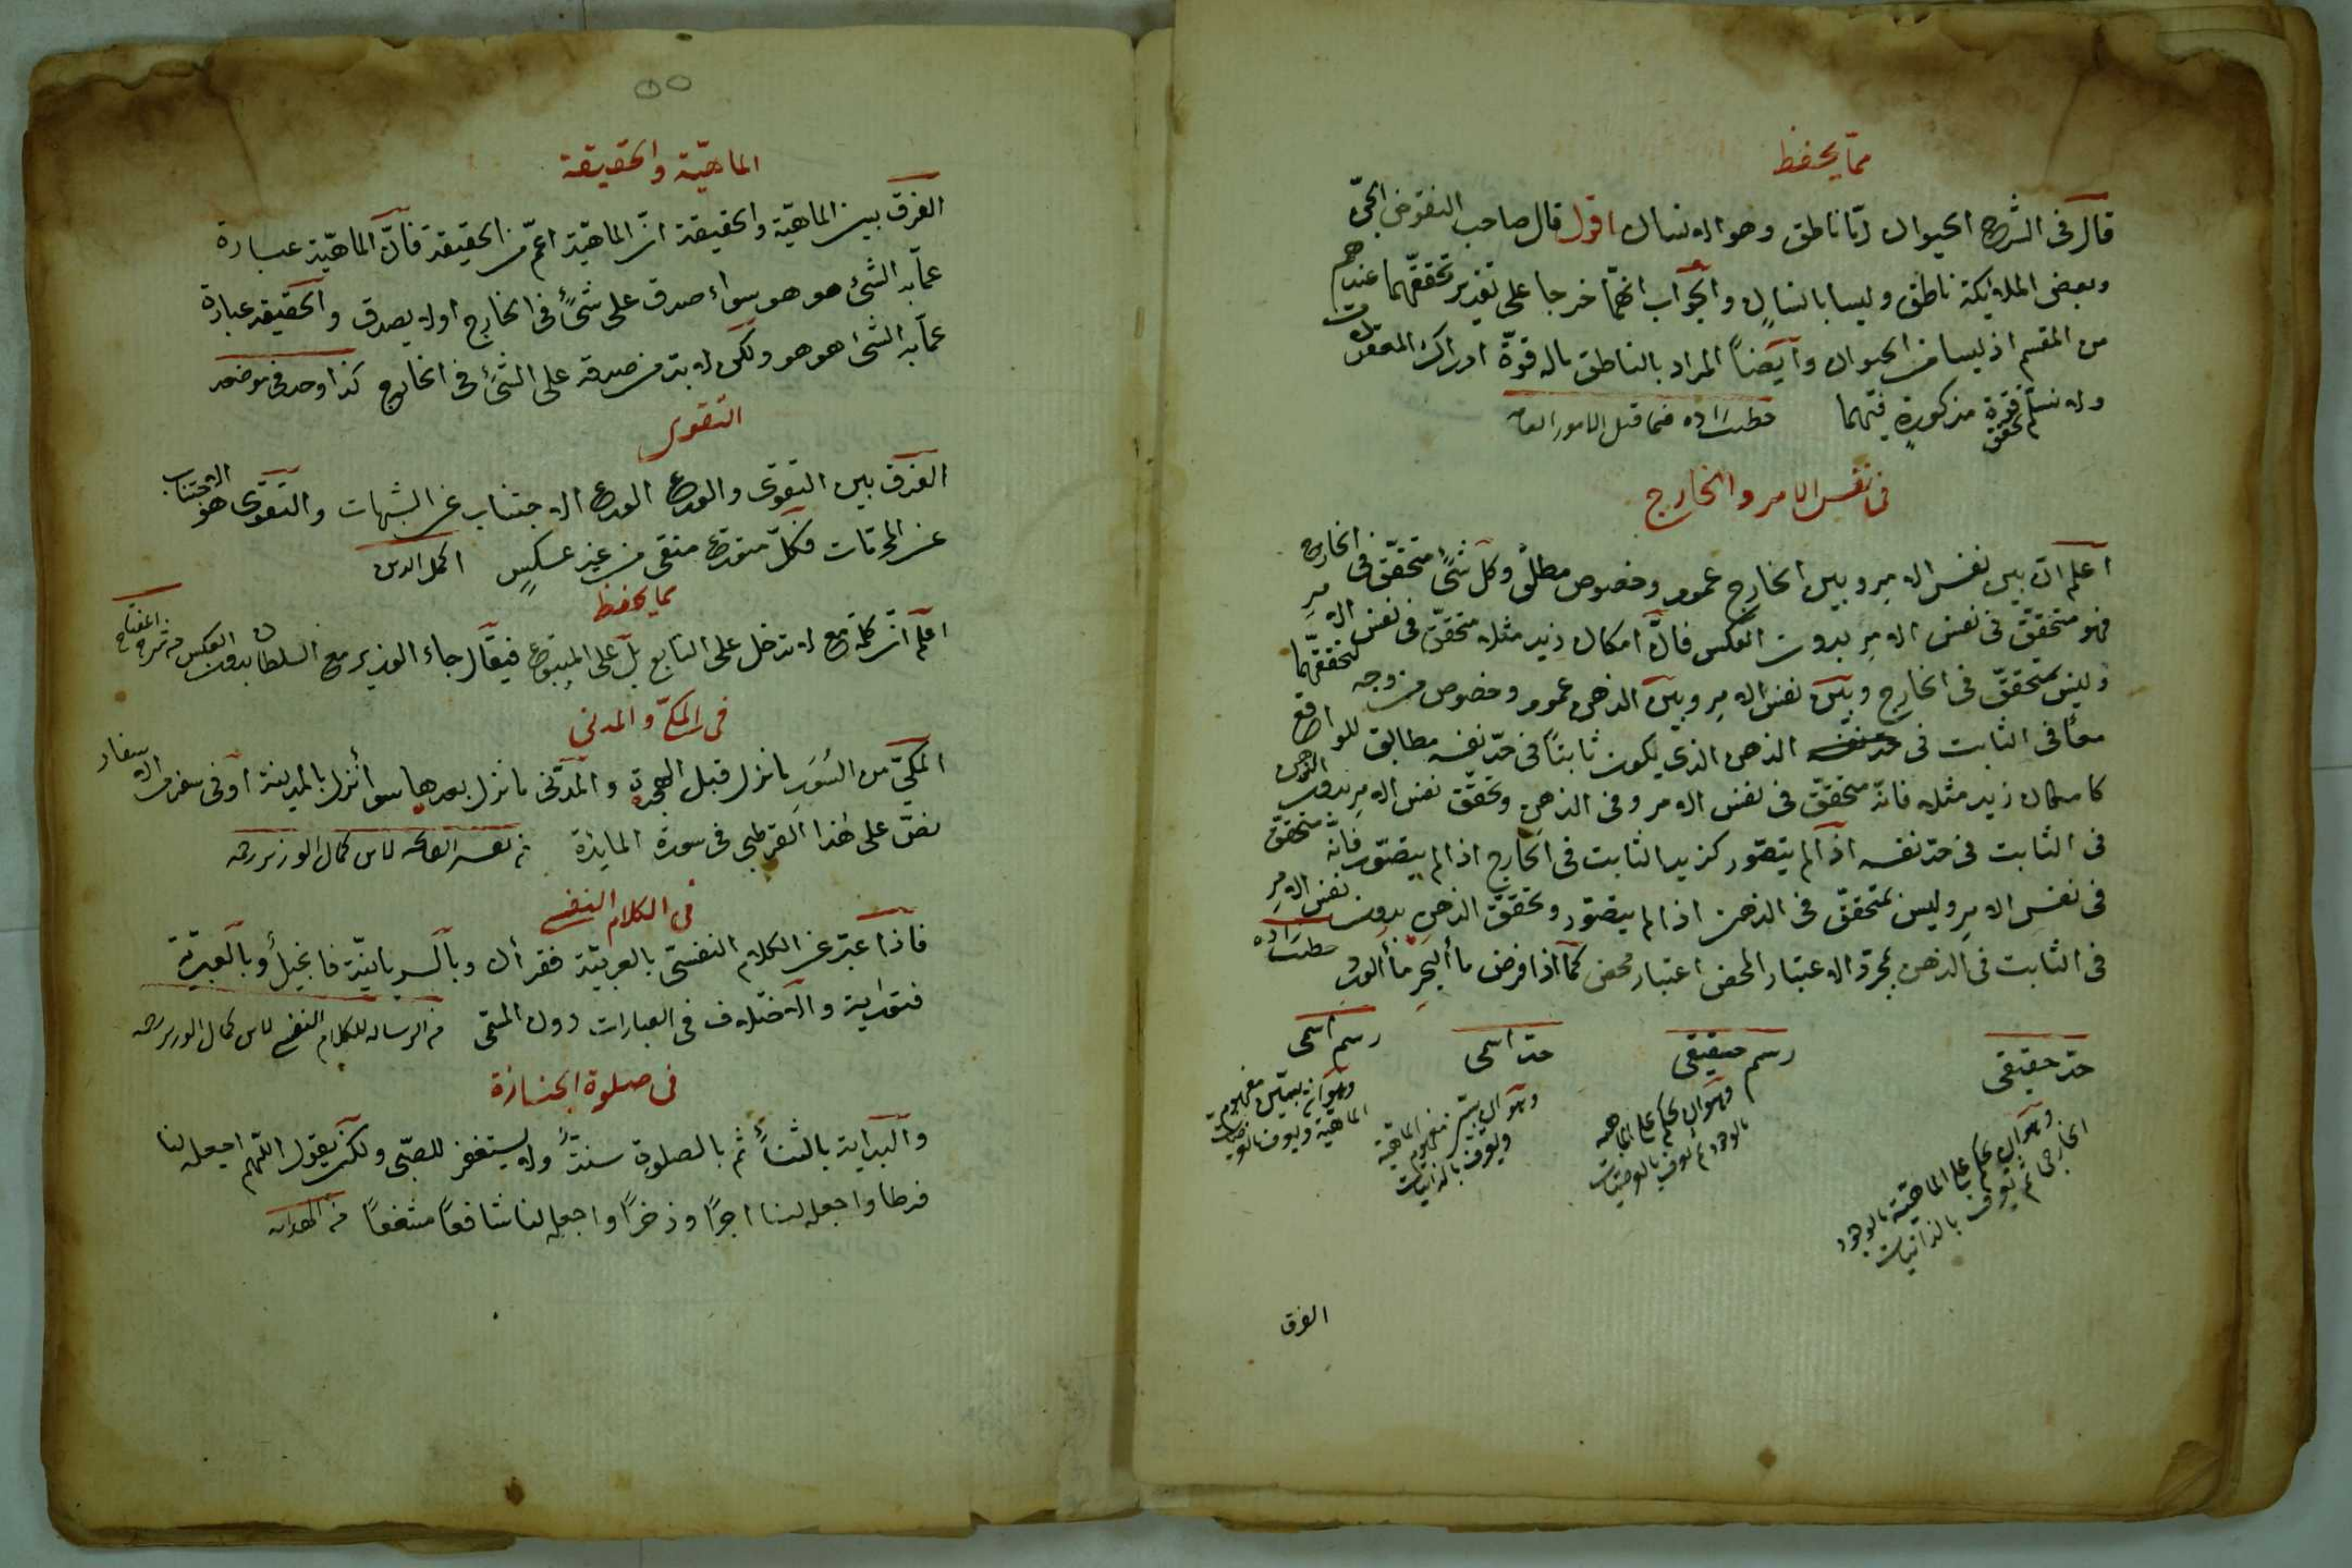 مما يحفظ
قال في الشرح الحيوان امّا ناطق وهو الانسان اقول قال صاحب النقوض الجنّ
وبعض الملايكة ناطق وليسا بانسانٍ والجواب انهما خرجا على تقدير تحققهما عندهم
من المقسم اذ ليسا من الحيوان وايضاً المراد بالناطق ماله قوةّ ادراك المعقولات
ولا نسلّم تحقق قوة مذكورةٍ فيهما فيما قبل الامور العامة
في نفس الامر والخارج
اعلم انّ بين نفس الامر وبين الخارج عموم وخصوص مطلق وكل شئ متحققّ في الخارج
فهو متحققّ في نفس الامرِ بدون العكس فانّ امكان زيد مثلا متحققّ في نفس الامرِ
وليس بمتحققّ في الخارج وبين نفس الامرِ وبين الذهن عموم وخصوص من وجه لتحققهما
معًا في الثابت في الذهن الذى يكون ثابتاً في حدّ نفسه مطابق للواقع
كامكان زيد مثلا فانّه متحققّ في نفس الامر وفى الذهنِ وتحققّ نفس الامرِ بدون الذهن
في الثابت في حدّ نفسه اذا لم يتصّور كزيد الثابت في الخارج اذا لم يتصّور فانّه متحققّ
في نفس الامرِ وليس بمتحققّ في الذهن اذا لم يتصّور وتحققّ الذهن بدون نفس الامرِ
في الثابت في الذهن بمجرّد الاعتبار المحض اعتبار محض كما اذا فرض ماء البحر ماء الورد
حدّ حقيقى
رسم حقيقى
حدّ اسمى
رسم اسمى
وهو ان يحكم على الماهيّة بالوجود
الخارجى ثم يعرف بالذاتيات
وهو ان يحكم على الماهية
بالوجود ثم يعرف بالعرضيات
وهو ان يبيّن مفهوم الماهيّة
ويعرف بالذاتيات
وهو ان يبيّن مفهوم
الماهيّة ويعرف بالعرضيات
الفرق
٥٥
الماهيّة والحقيقة
الفرق بين الماهيّة والحقيقة انّ الماهيّة اعمّ من الحقيقة فانّ الماهيّة عبارة
عمّا به الشئ هو هو سواء صدق على شئ في الخارج اولا يصدق والحقيقة عبارة
عمّا به الشئ هو هو ولكن لا بدّ من صدقه على الشئ في الخارج كذا وجد في موضعه
التقوى
الفرق بين التقوى والورع الورع الاجتناب عن الشبهات والتقوى هو الاجتناب
عن المحرمات فكلّ متورع متقى من غير عكسٍ اكمل الدين
مما يحفظ
اعلم انّ كلمة مع لا تدخل على التابع بل على المتبوع فيقال جاء الوزير مع السلطان بدون العكس من شرح المفتاح
في المكّى والمدنى
المكىّ من السُوَرِ ما نزل قبل الهجرة والمدنّى ما نزل بعدها سواء نزل بالمدينة او في سفر من الاسفار
نصّ على هذا القرطبى في سورة المايدة من تفسير الفاتحة لابن كمال الوزير رحمه
في الكلام النفسى
فاذا عبّر عن الكلام النفسّى بالعربيّة فقرآن وبالسريانيّة فانجيل وبالعبريّة
فتوراية والاختلاف في العبارات دون المسمّى من الرسالة للكلام النفسى لابن كمال الوزير رحمه
في صلوة الجنازة
والبداية بالثناء ثم بالصلوة سنّة ولا يستغفر للصبّى ولكن يقول اللّهم اجعله لنا
فرطا واجعله لنا اجرًا وذخرًا واجعله لنا شافعًا مشفعًا من الهداية